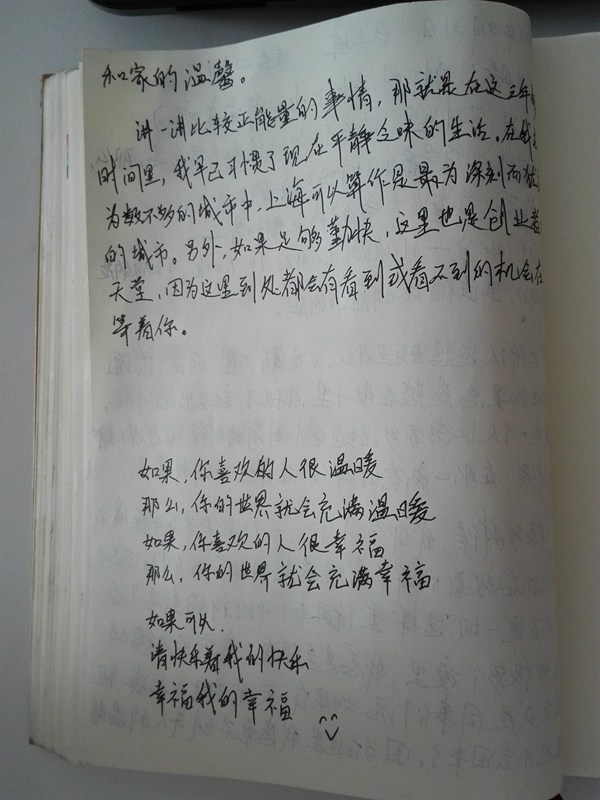 和家的温馨。
讲一讲比较正能量的事情，那就是在这三年
时间里，我早已习惯了现在平静乏味的生活。在我
为数不多的城市中，上海可以算作是最为深刻而
的城市。另外，如果足够勤快，这里也是创业者
天堂，因为这里到处都会有看到或看不到的机会在
等着你。
如果，你喜欢的人很温暖
那么，你的世界就会充满温暖
如果，你喜欢的人很幸福
那么，你的世界就会充满幸福
如果可以.
请快乐着我的快乐
幸福我的幸福